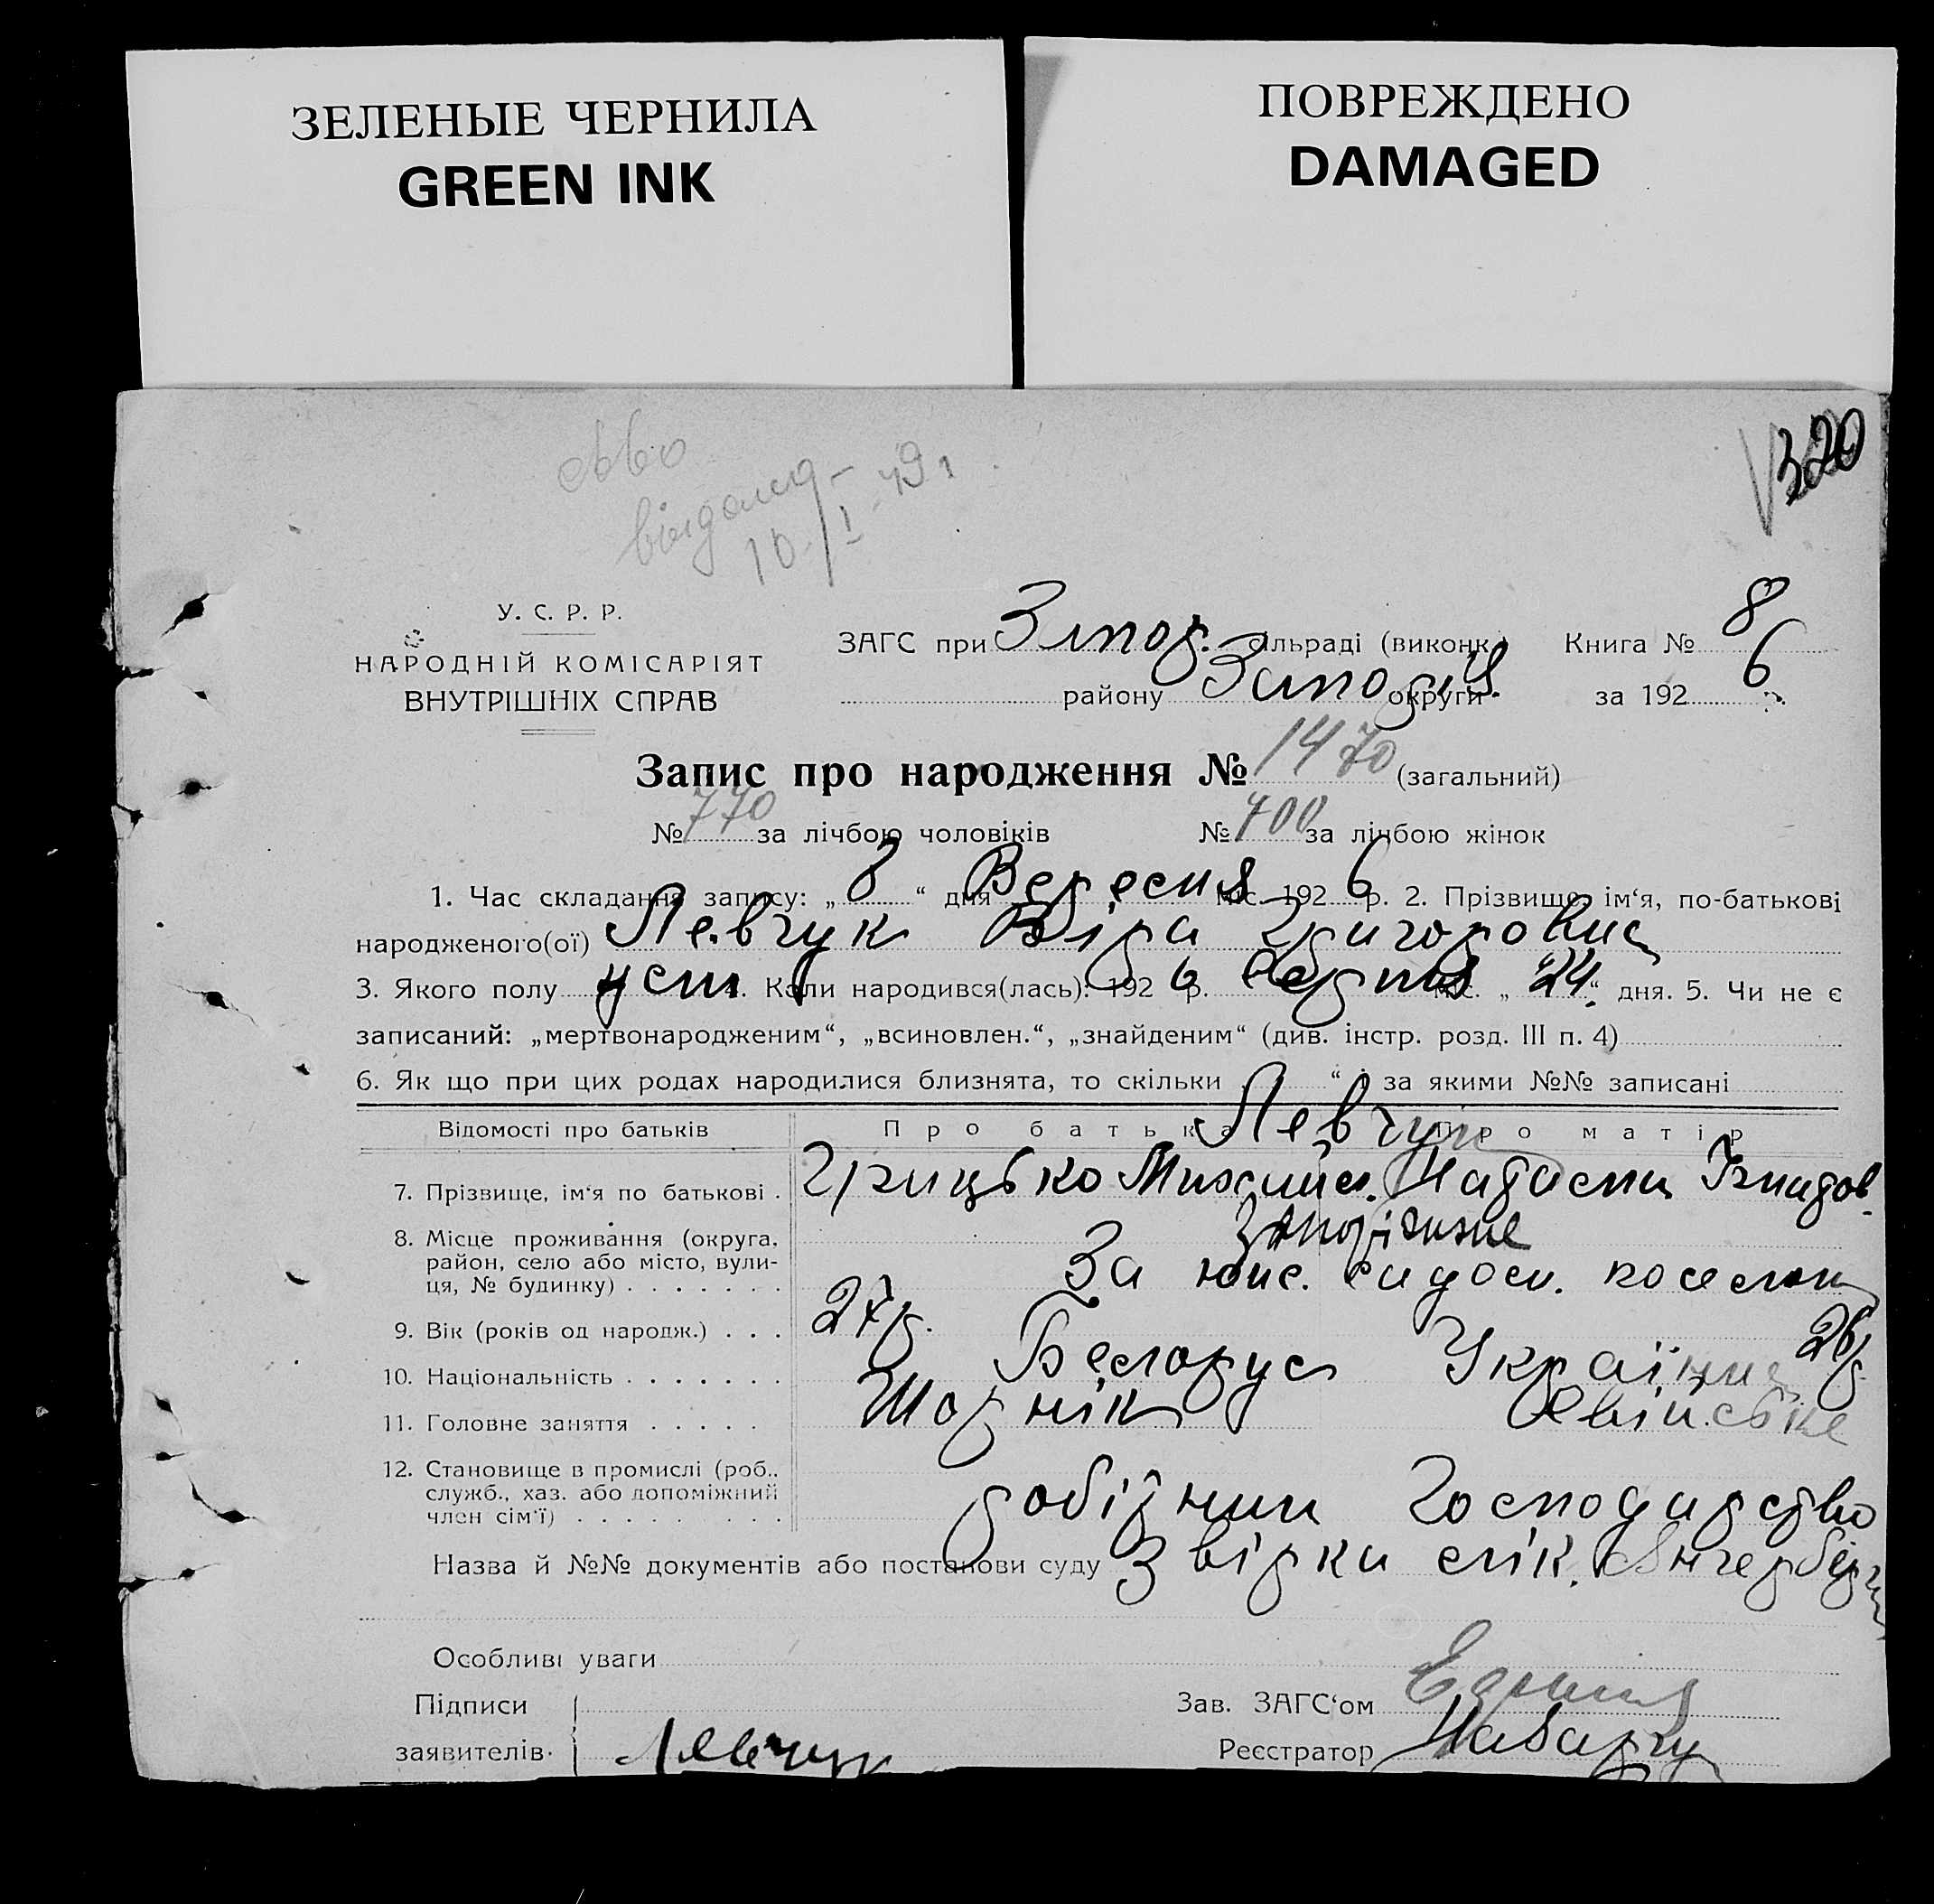 ЗЕЛЕНЫЕ ЧЕРНИЛА
GREEN INK
ПОВРЕЖДЕНО
DAMAGED
320
10/I
У. С. Р. Р.
НАРОДНІЙ КОМІСАРІЯТ
ВНУТРІШНІХ СПРАВ
ЗАГС при Запор. сільраді (виконк.) Книга № 8
району округи за 192 6 р.
Запис про народження № 1470 (загальний)
№ 770 за лічбою чоловіків № 700 за лічбою жінок
1. Час складання запису: „ 8 “ дня Вересня міс. 192 6 р. 2. Прізвище, ім‘я, по-батькові
народженого(ої) Левчук Віра Григоровна
3. Якого полу жен 4. Коли народився(лась): 192 6 р. Серпня міс. „ 24 “ дня. 5. Чи не є
записаний: „мертвонародженим“, „всиновлен.“, „знайденим“ (див. інстр. розд. III п. 4)
6. Як що при цих родах народилися близнята, то скільки “ за якими №№ записані
Відомості про батьків Про батька Про матір
Левчук
7. Прізвище, ім‘я по батькові . Грицько Михайл.
8. Місце проживання (округа, район, село або місто, вули-
ця, № будинку) Запоріжжє
За
9. Вік (років од народж.) . . . 27 р. 26 р.
10. Національність Белорус Українка
11. Головне заняття Шорнік Хвійське
12. Становище в промислі (роб.,
служб., хаз. або допоміжний
член сім‘ї) робітник Господарство
Назва й №№ документів або постанови суду З вірки лік.
Особливі уваги
Підписи Зав. ЗАГС‘ом
заявителів Левчук Реєстратор